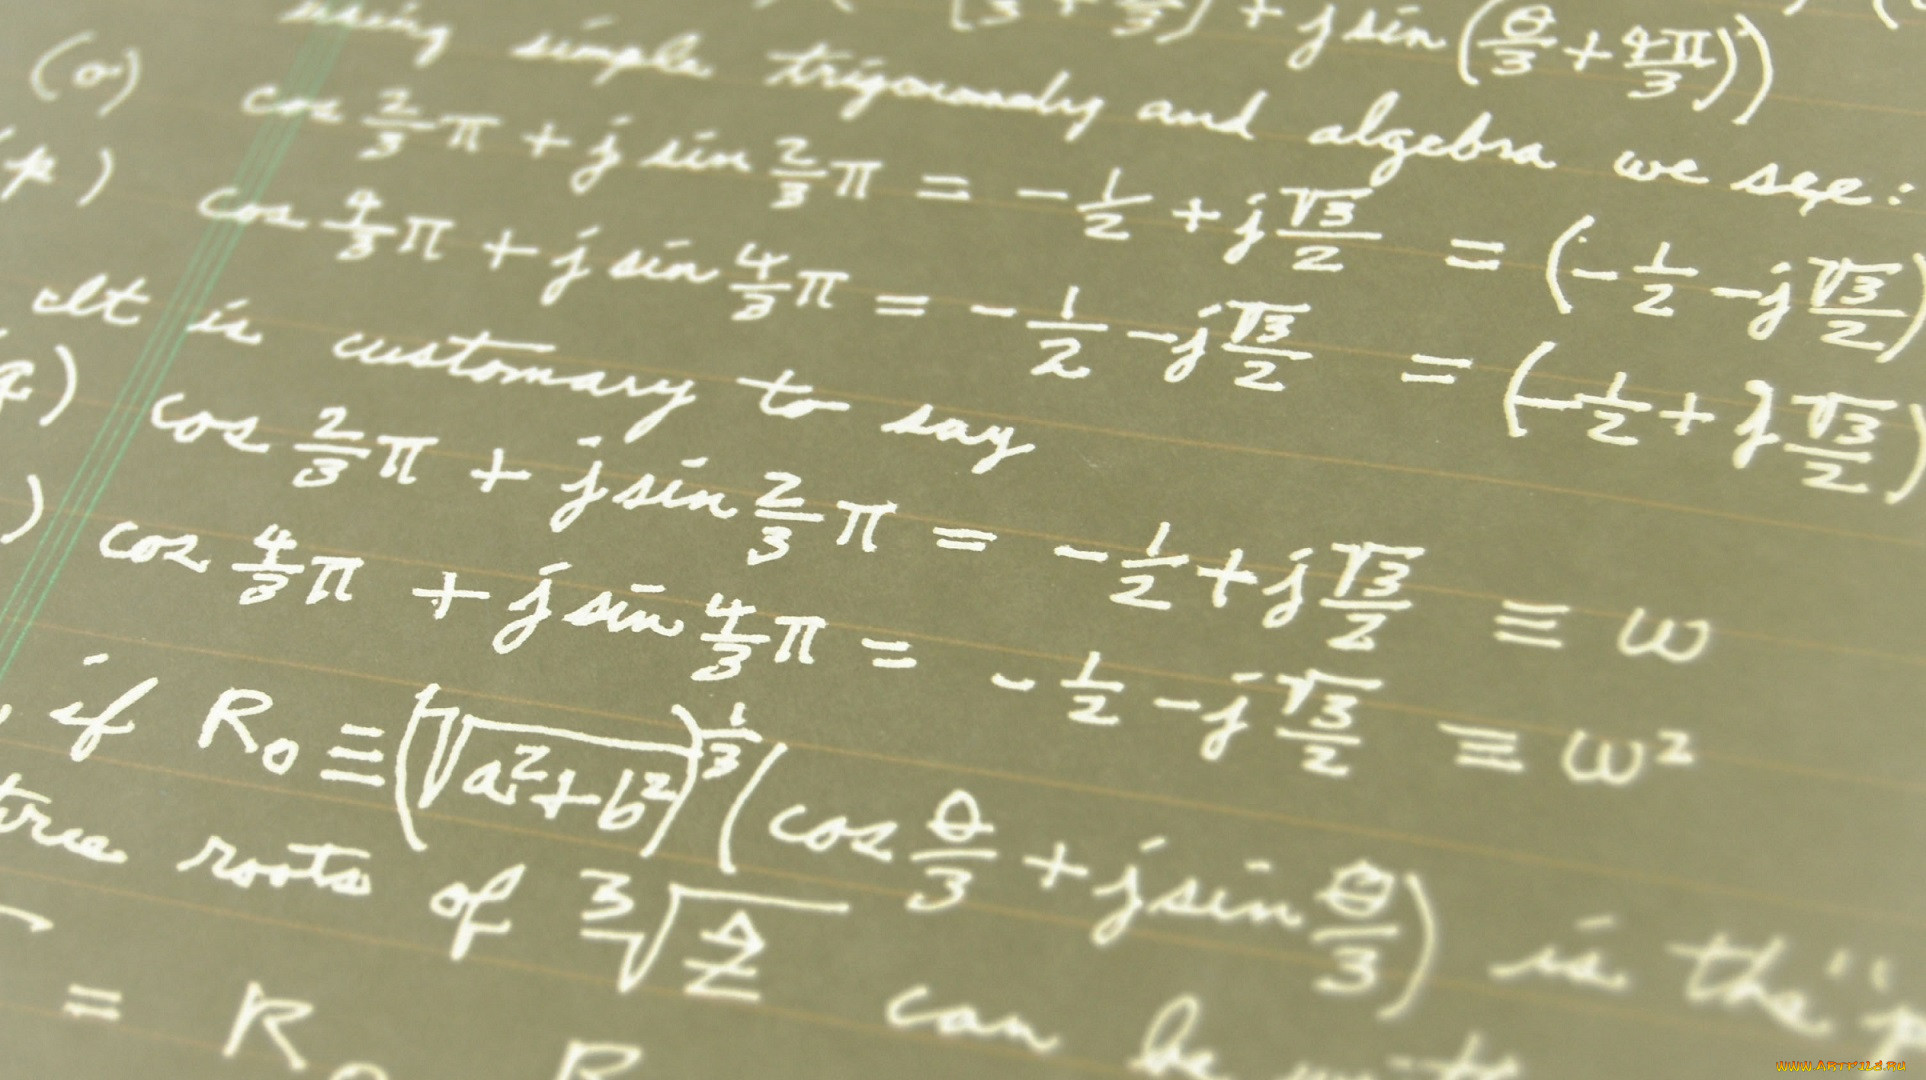 [θ/3 + 4π/3] + j sin(θ/3 + 4π/3))
using simple trigonometry and algebra we see:
(o) cos 2/3 π + j sin 2/3 π = -1/2 + j √3/2 = (-1/2 - j √3/2)
(p) cos 4/3 π + j sin 4/3 π = -1/2 - j √3/2 = (-1/2 + j √3/2)
It is customary to say
(q) cos 2/3 π + j sin 2/3 π = -1/2 + j √3/2 ≡ ω
) cos 4/3 π + j sin 4/3 π = -1/2 - j √3/2 ≡ ω²
, if R₀ ≡ (√(a²+b²))^(1/3) (cos θ/3 + j sin θ/3) is the "
three roots of ³√Ẑ can be
= R₀ R
www.ArtFile.ru